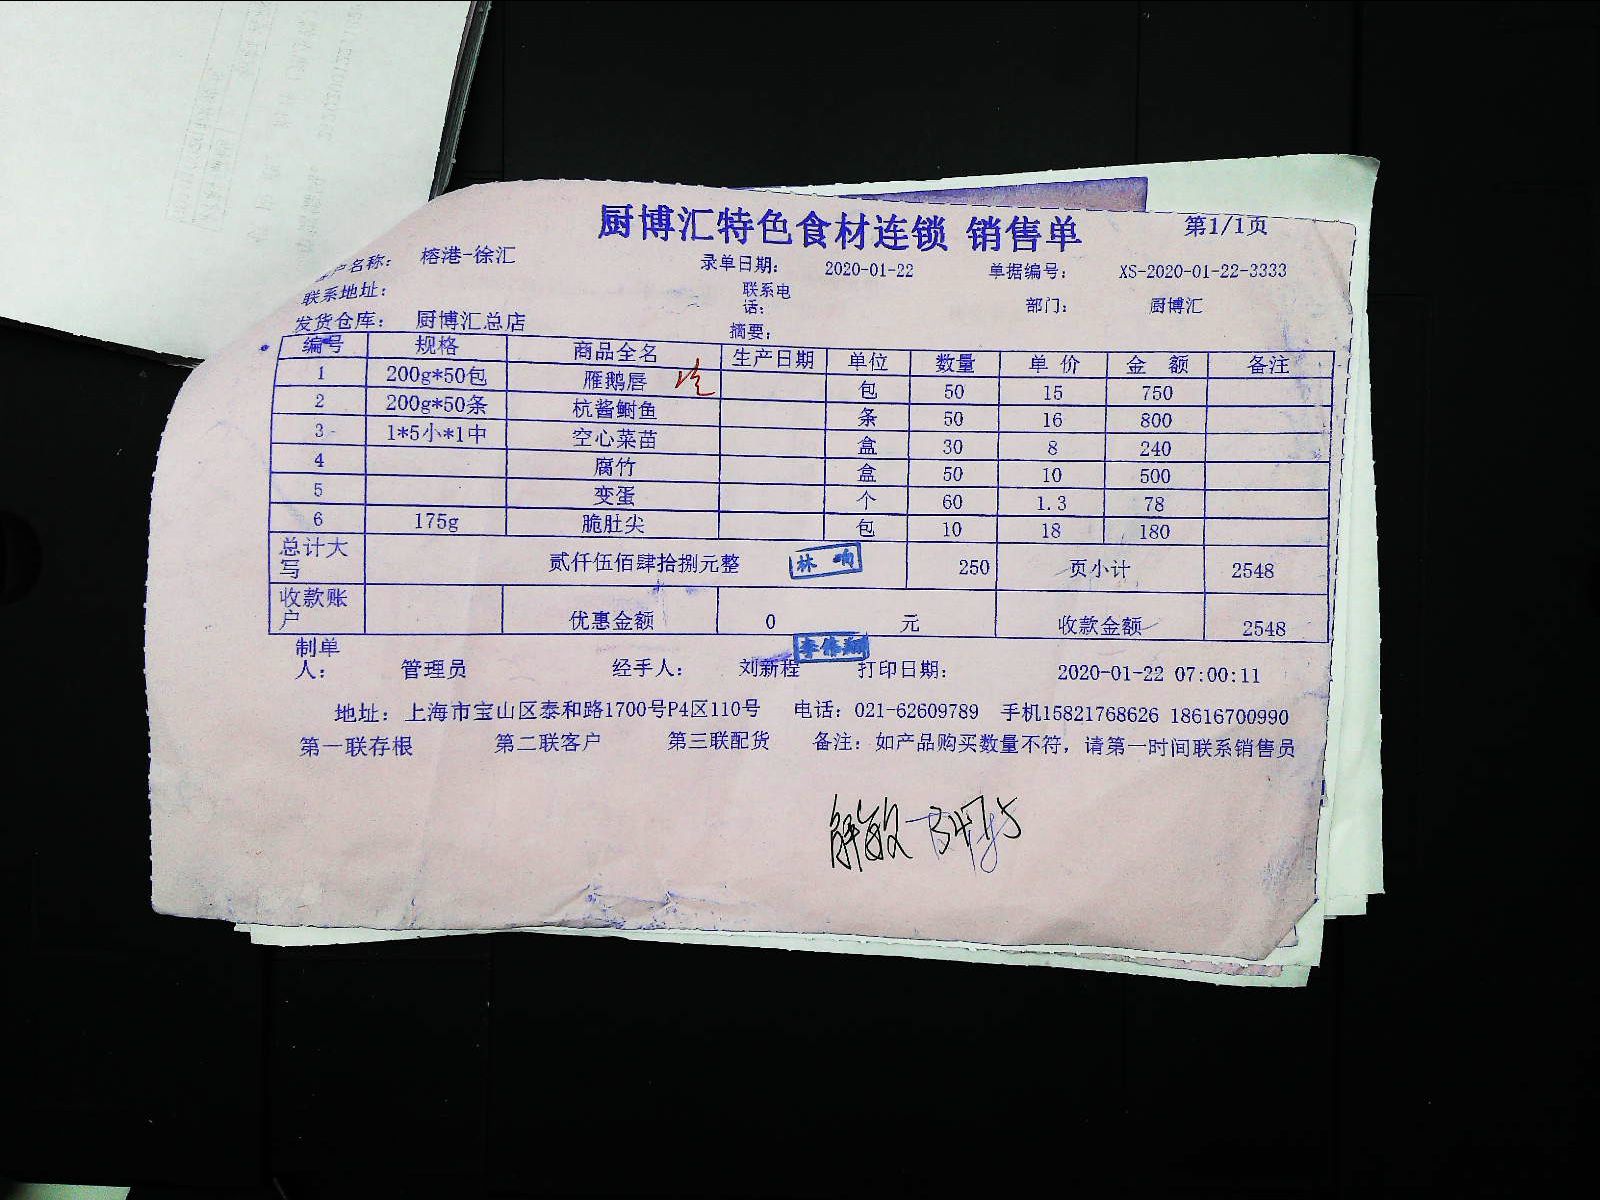 厨博汇特色食材连锁 销售单 第1/1页
户名称： 榕港-徐汇 录单日期： 2020-01-22 单据编号： XS-2020-01-22-3333
联系地址： 联系电话： 部门： 厨博汇
发货仓库： 厨博汇总店 摘要：
编号 规格 商品全名 生产日期 单位 数量 单 价 金 额 备注
1 200g*50包 雁鹅唇 包 50 15 750
2 200g*50条 杭酱鲥鱼 条 50 16 800
3 1*5小*1中 空心菜苗 盒 30 8 240
4 腐竹 盒 50 10 500
5 变蛋 个 60 1.3 78
6 175g 脆肚尖 包 10 18 180
总计大写 贰仟伍佰肆拾捌元整 林 响 250 页小计 2548
收款账户 优惠金额 0 元 收款金额 2548
李伟翔
制单人： 管理员 经手人： 刘新程 打印日期： 2020-01-22 07:00:11
地址：上海市宝山区泰和路1700号P4区110号 电话：021-62609789 手机15821768626 18616700990
第一联存根 第二联客户 第三联配货 备注：如产品购买数量不符，请第一时间联系销售员